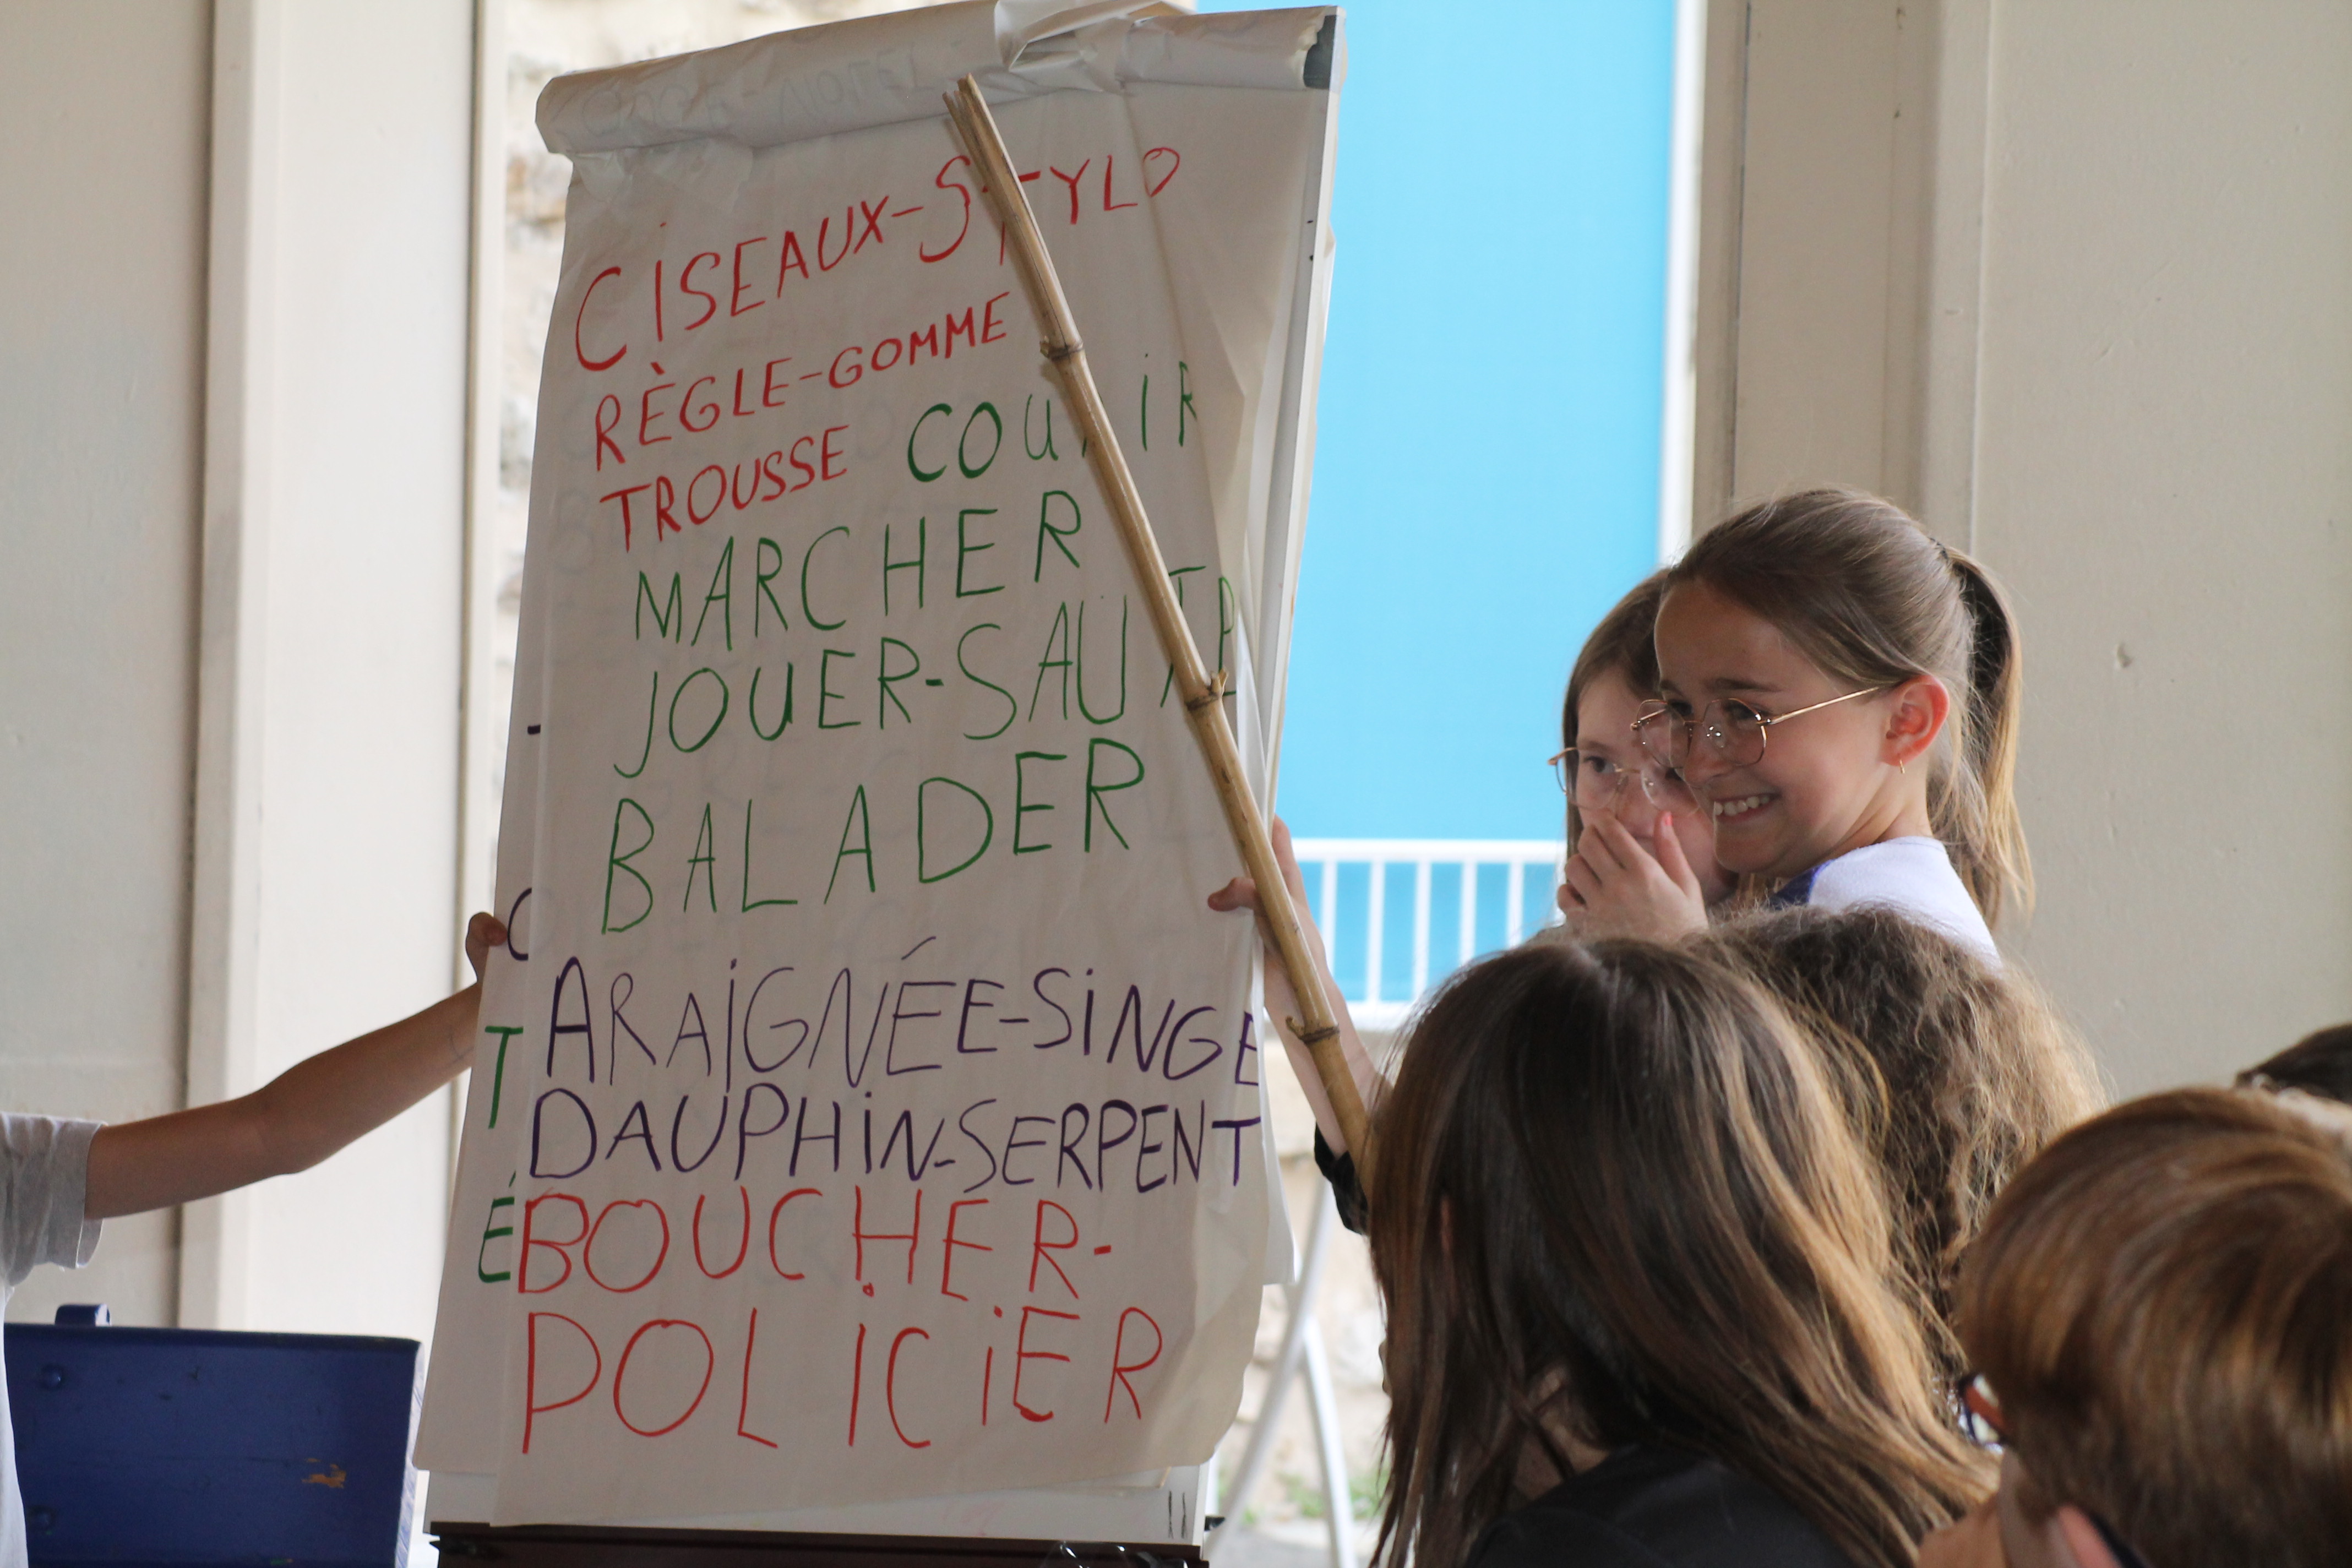 CISEAUX-STYLO
RÈGLE-GOMME
TROUSSE COURIR
MARCHER
JOUER-SAUTE
BALADER
ARAIGNÉE-SINGE
DAUPHIN-SERPENT
BOUCHER-
POLICIER